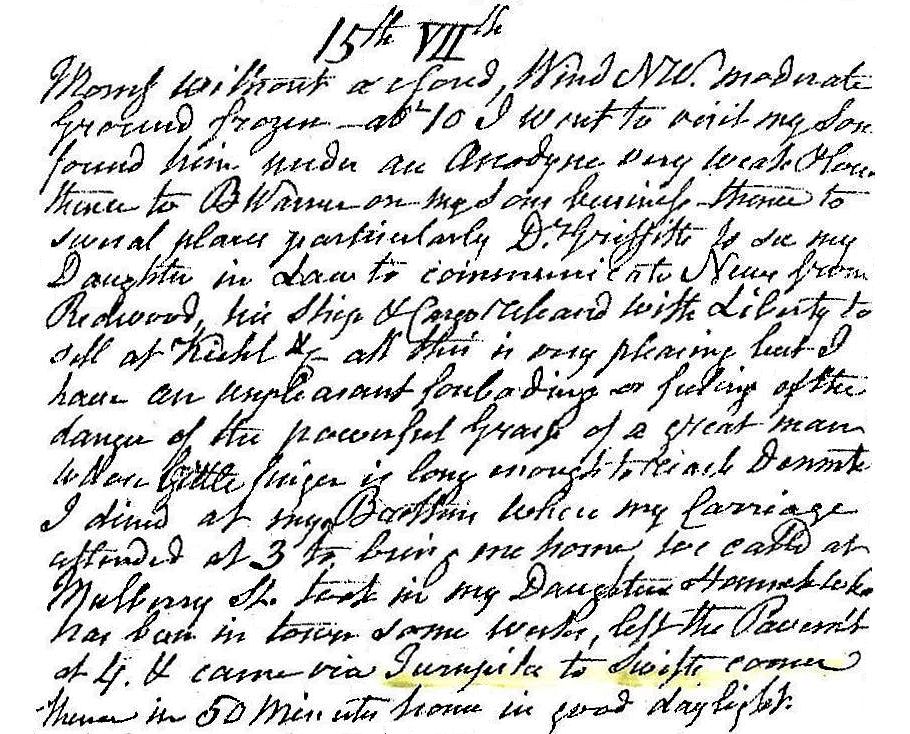 15th VIIth
Morng without a cloud, Wind NW. moderate
Ground frozen — abt 10 I went to visit my Son
found him under an Anodyne very weak
thence to B Warner on my Sons business thence to
several places particularly Dr. Griffitts to see my
Daughter in Law to communicate News from
Redwood, his Ship & Cargo releasd with Liberty to
sell at Kiehl &c — all this is very pleasing but I
have an unpleasant forboding or feeling of the
danger of the powerful Grasp of a great man
whose little finger is long enough to reach Denmk
I dined at my Brothers where my Carriage
attended at 3 to bring me home, we calld at
Mulberry St. took in my Daughter Hannah who
has been in town some weeks, left the Pavemt
at 4. & came via Turnpike to Swifts corner
thence in 50 Minutes home in good daylight.